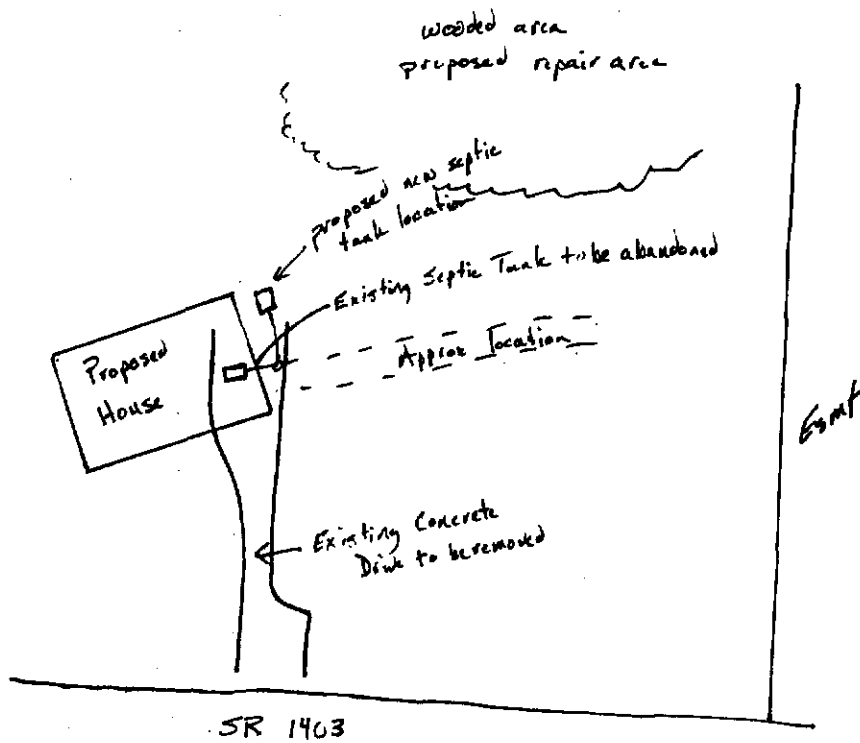 wooded area
proposed repair area
proposed new septic
tank location
Existing Septic Tank to be abandoned
Approx location
Proposed
House
Esmt
Existing Concrete
Drive to be removed
SR 1403